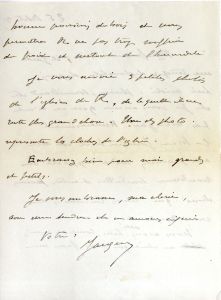 bonne provision de bois et vous
permettra de ne pas trop souffrir
du froid et surtout de l'humidité
Je vous envoie 3 petites photos
de l'église de R., de laquelle il ne
reste plus grand chose. Une des photos
représente les cloches de l'église.
Embrassez bien pour moi grands
et petits.
Je vous embrasse, ma chérie,
avec tendresse et
Votre
Jacques